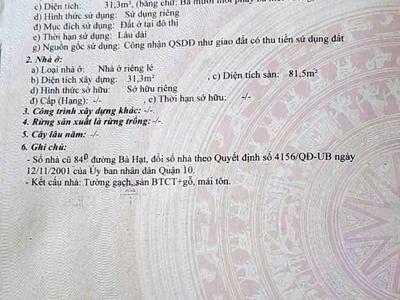 c) Diện tích: 31,3m², (bằng chữ: Ba mươi mốt phẩy ba
d) Hình thức sử dụng: Sử dụng riêng
đ) Mục đích sử dụng: Đất ở tại đô thị
e) Thời hạn sử dụng: Lâu dài
g) Nguồn gốc sử dụng: Công nhận QSDĐ như giao đất có thu tiền sử dụng đất
2. Nhà ở:
a) Loại nhà ở: Nhà ở riêng lẻ
b) Diện tích xây dựng: 31,3m² , c) Diện tích sàn: 81,5m²
d) Hình thức sở hữu: Sở hữu riêng
đ) Cấp (Hạng): -/- , e) Thời hạn sở hữu: -/-
3. Công trình xây dựng khác: -/-
4. Rừng sản xuất là rừng trồng: -/-
5. Cây lâu năm: -/-
6. Ghi chú:
- Số nhà cũ 84Đ đường Bà Hạt, đổi số nhà theo Quyết định số 4156/QĐ-UB ngày
12/11/2001 của Ủy ban nhân dân Quận 10.
- Kết cấu nhà: Tường gạch, sàn BTCT+gỗ, mái tôn.